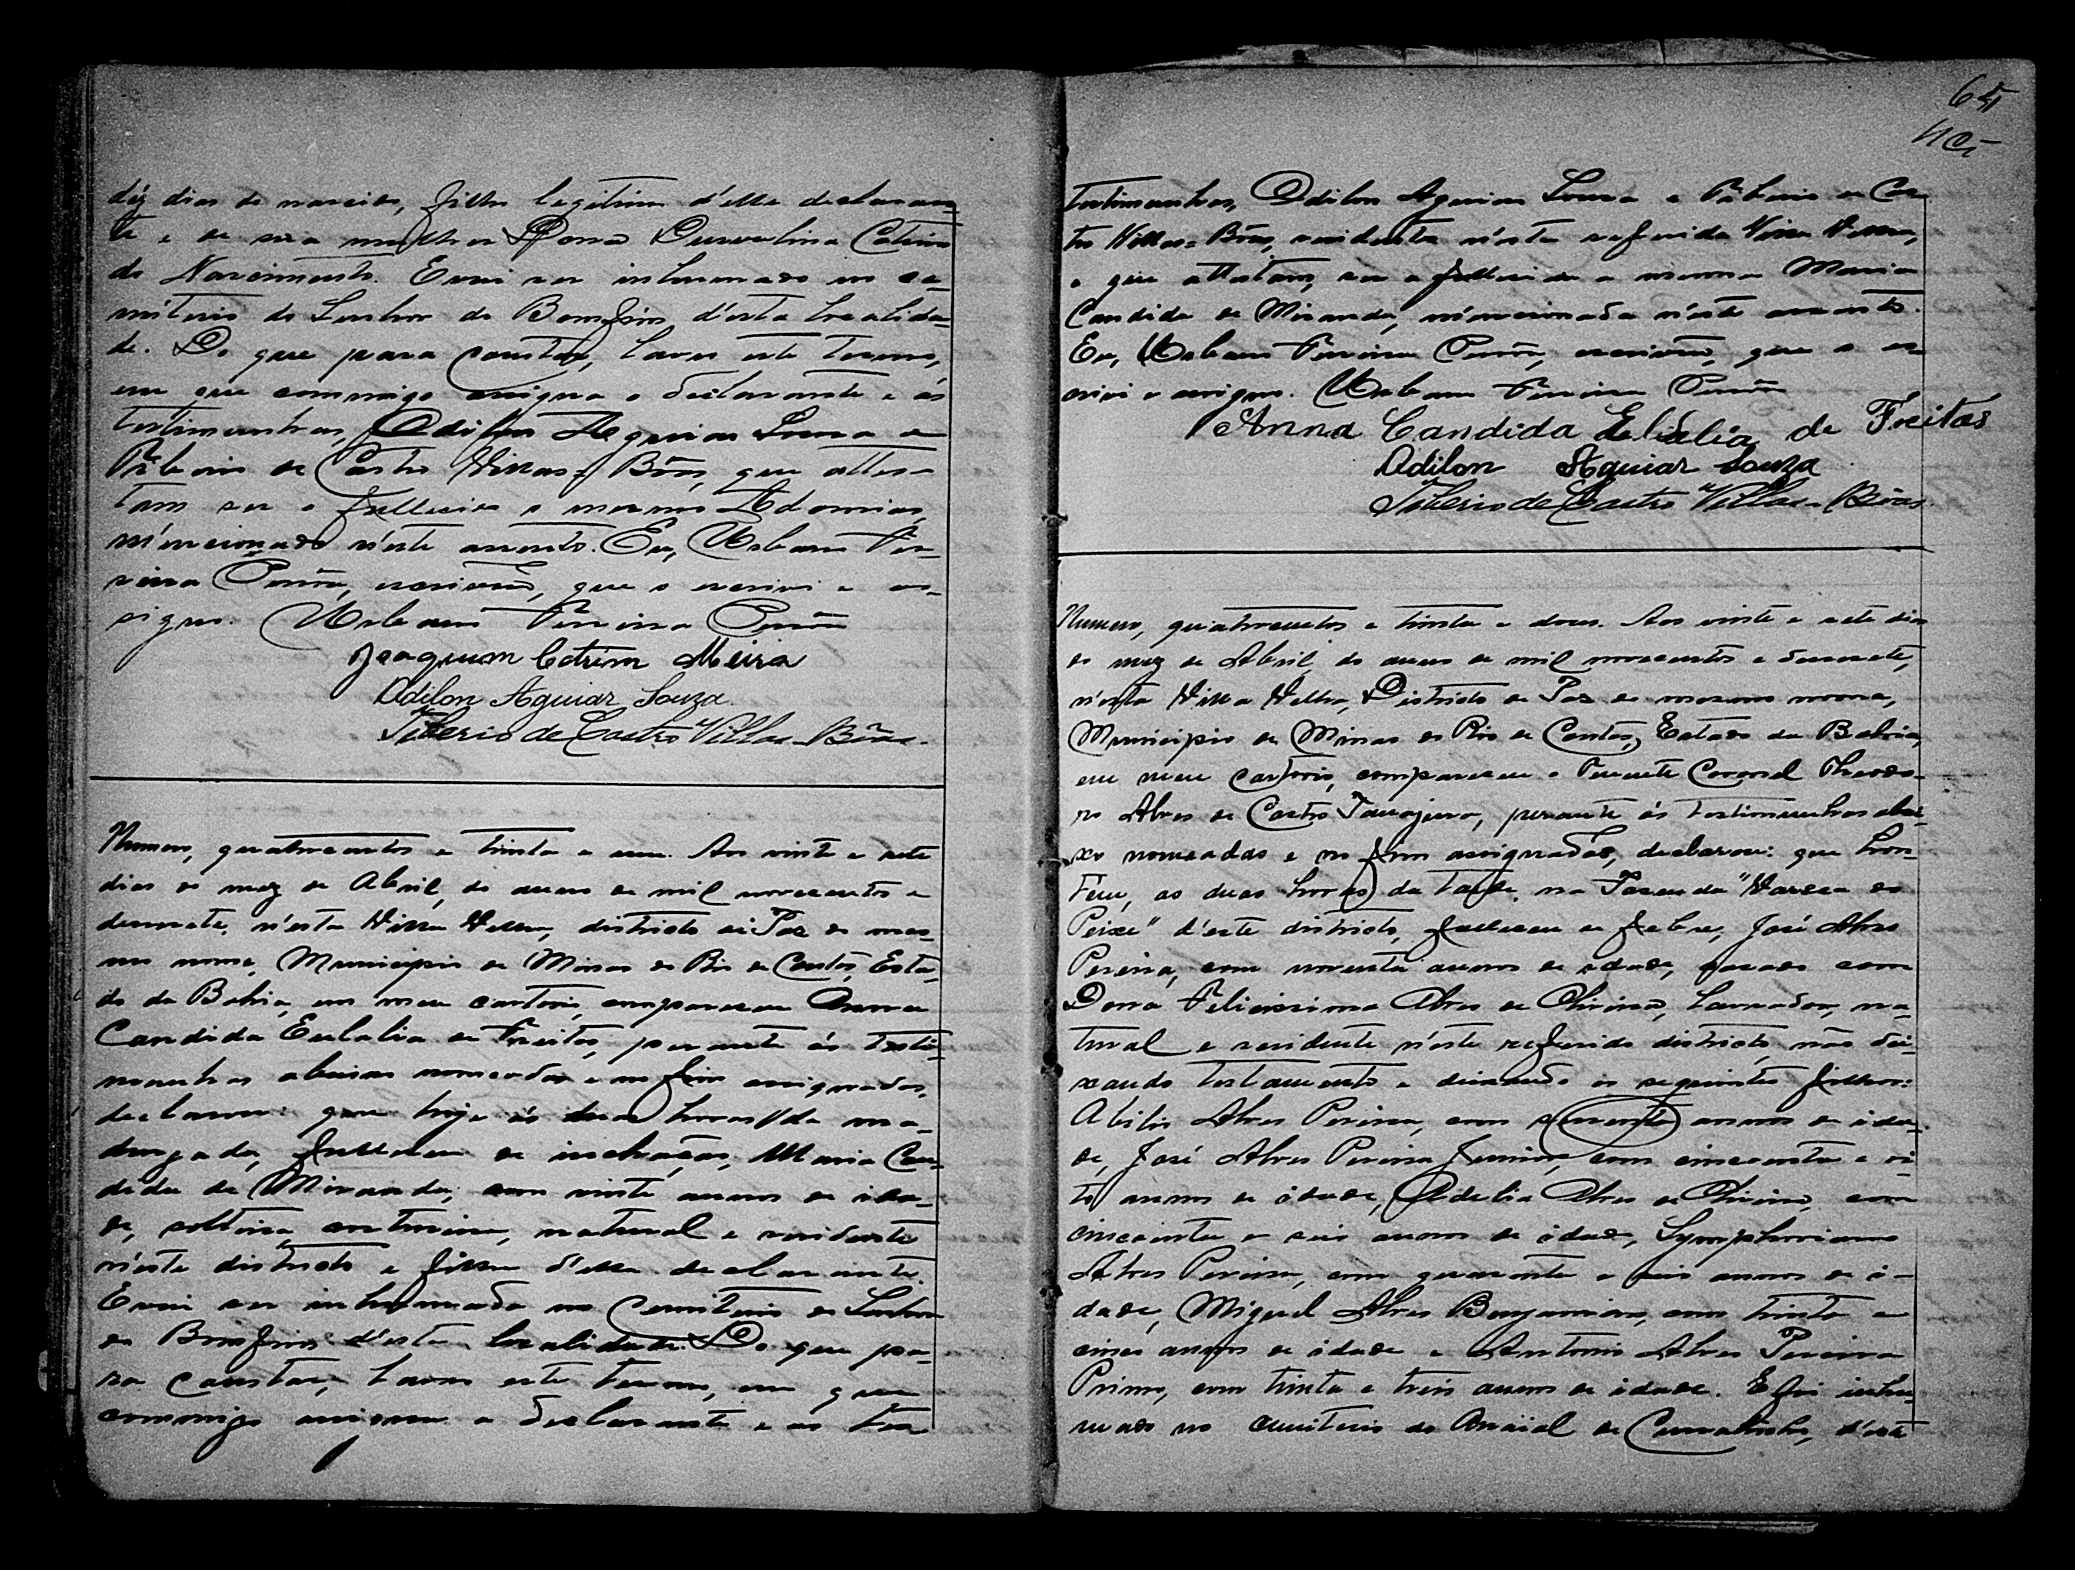 déz dias de nascido, filho legitimo d'elle declaran-
te e de sua mulher Dona Durvalina Catrim
do Nascimento. E vai ser inhumado no ce-
miterio do Senhor do Bomfim d'esta localida-
de. Do que para constar, lavrei este termo,
em que commigo assigna o declarante e ás
testimunhas, Odilon Aguiar Souza e
Tiberio de Castro Villas-Bôas, que attes-
tam ser o fallecido o mesmo
mencionado n'este assento. Eu, Urbano Fer-
reira , escrivão, que o escrevi e as-
signo. Urbano Ferreira
Joaquim Catrim Meira
Odilon Aguiar Souza.
Tiberio de Castro Villas-Bôas.
Numero, quatrocentos e trinta e um. Aos vinte e sete
dias do mez de Abril, do anno de mil novecentos e
desesete, n'esta Villa Velha, districto de Paz do mes-
mo nome, Municipio de Minas do Rio de Contas, Esta-
do da Bahia, em meu cartorio, compareceu Anna
Candida Eulalia de Freitas, perante ás testi-
munhas abaixo nomeadas e no fim assignadas,
declarou: que hoje ás duas horas da ma-
drugada, falleceu de inchação, Maria Can-
dida de Miranda, com vinte annos de ida-
de, solteira, costureira, natural e residente
n'este districto e filha d'ella declarante.
E vai ser inhumada no Cemiterio do Senhor
do Bomfim d'esta localidade. Do que pa-
ra constar, lavrei este termo, em que
commigo assigna a declarante e as tes-
65
testimunhas, Odilon Aguiar Souza e Tiberio de Cas-
tro Villas-Bôas, residentes n'esta referida Villa Velha,
e que attestam, ser a fallecida a mesma Maria
Candida de Miranda, mencionada n'este assento.
Eu, Urbano Ferreira , escrivão, que o es-
crevi e assigno. Urbano Ferreira
Anna Candida Eulalia de Freitas
Odilon Aguiar Souza
Tiberio de Castro Villas-Bôas.
Numero, quatrocentos e trinta e dous. Aos vinte e sete dias
do mez de Abril, do anno de mil novecentos e desesete,
n'esta Villa Velha, Districto de Paz do mesmo nome,
Municipio de Minas do Rio de Contas, Estado da Bahia,
em meu cartorio, compareceu o Tenente Coronel Theodo-
ro Alves de Castro Tanajura, perante ás testimunhas abai-
xo nomeadas e no fim assignadas, declarou: que hon-
tem, as duas horas da tarde, na Fazenda "Varzea do
Peixe" d'este districto, falleceu de febre, José Alves
Pereira, com noventa annos de idade, casado com
Dona Felicissima Alves de Oliveira, lavrador, na-
tural e residente n'este referido districto, não dei-
xando testamento e deixando os seguintes filhos:
Abilio Alves Pereira, com sessenta annos de ida-
de, José Alves Pereira Junior, com cincoenta e oi-
to annos de idade, Adelia Alves de Oliveira, com
cincoenta e seis annos de idade, Symphoriano
Alves Pereira, com quarenta e seis annos de i-
dade, Miguel Alves Benjamim, com trinta e
cinco annos de idade e Antonio Alves Pereira
Primo, com trinta e treis annos de idade. E foi inhu-
mado no cemiterio do Arraial de , d'este